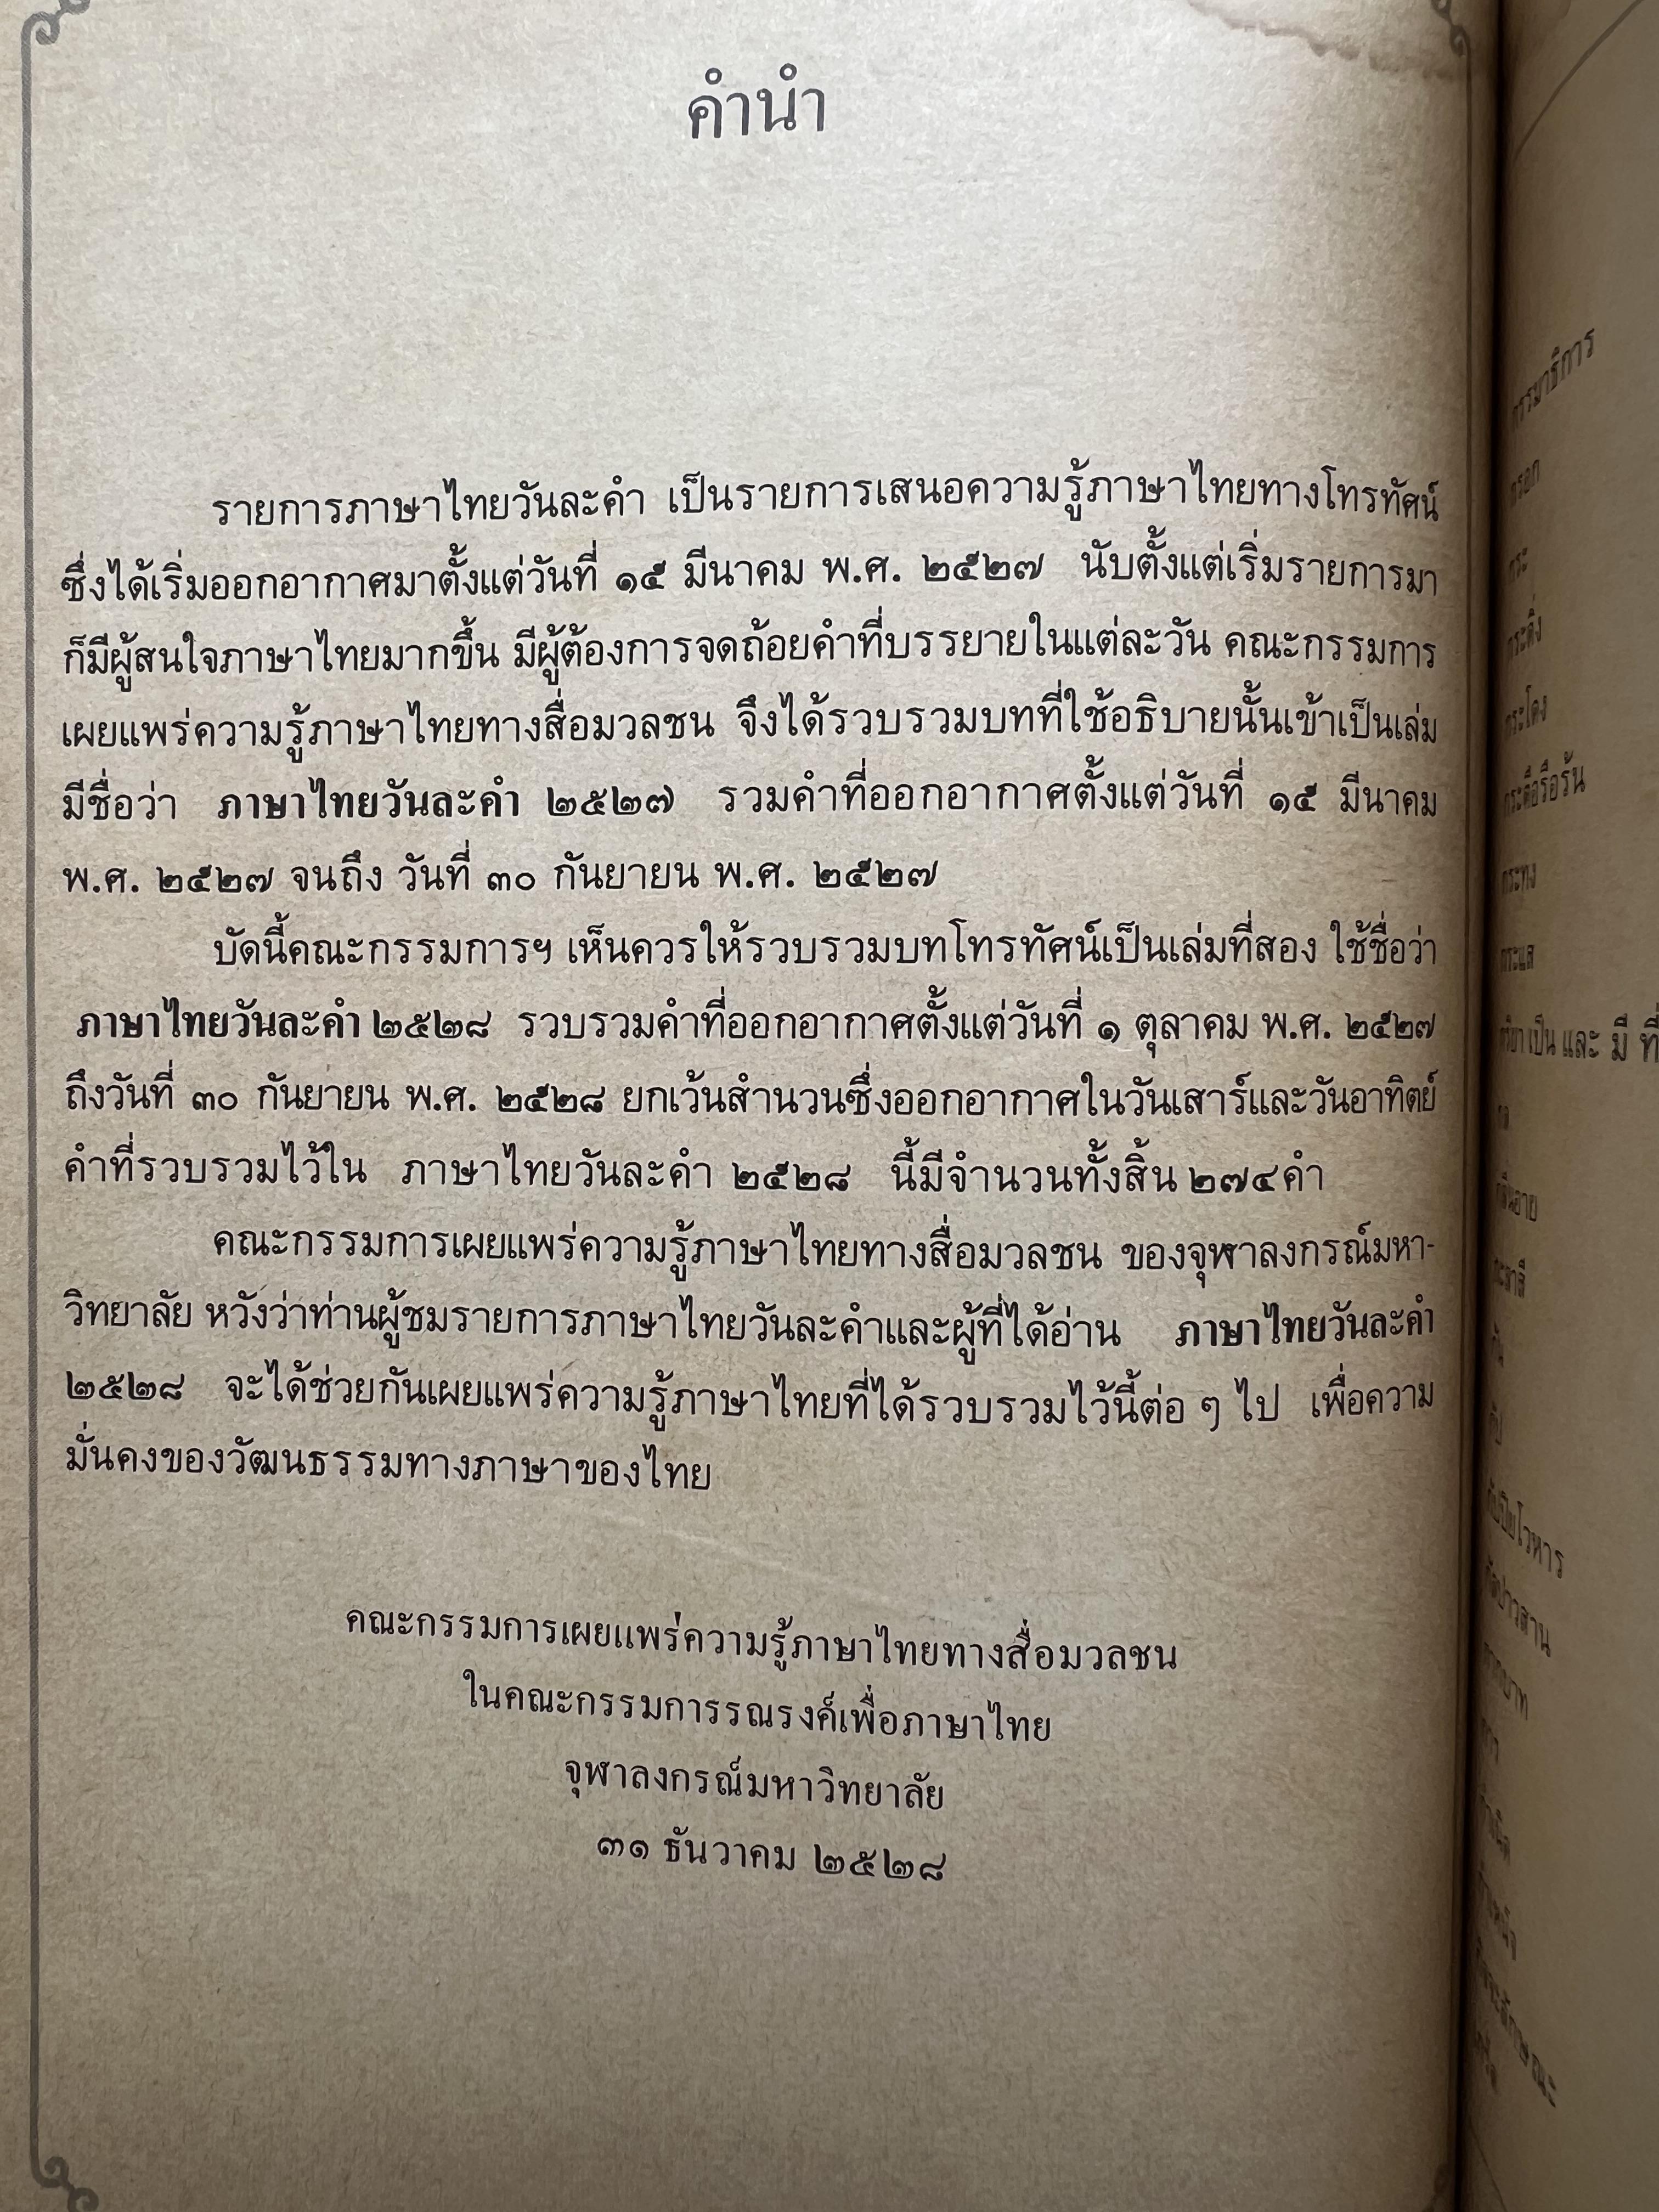 คำนำ
รายการภาษาไทยวันละคำ เป็นรายการเสนอความรู้ภาษาไทยทางโทรทัศน์
ซึ่งได้เริ่มออกอากาศมาตั้งแต่วันที่ ๑๕ มีนาคม พ.ศ. ๒๕๒๗ นับตั้งแต่เริ่มรายการมา
ก็มีผู้สนใจภาษาไทยมากขึ้น มีผู้ต้องการจดถ้อยคำที่บรรยายในแต่ละวัน คณะกรรมการ
เผยแพร่ความรู้ภาษาไทยทางสื่อมวลชน จึงได้รวบรวมบทที่ใช้อธิบายนั้นเข้าเป็นเล่ม
มีชื่อว่า ภาษาไทยวันละคำ ๒๕๒๗ รวมคำที่ออกอากาศตั้งแต่วันที่ ๑๕ มีนาคม
พ.ศ. ๒๕๒๗ จนถึง วันที่ ๓๐ กันยายน พ.ศ. ๒๕๒๗
บัดนี้คณะกรรมการฯ เห็นควรให้รวบรวมบทโทรทัศน์เป็นเล่มที่สอง ใช้ชื่อว่า
ภาษาไทยวันละคำ ๒๕๒๘ รวบรวมคำที่ออกอากาศตั้งแต่วันที่ ๑ ตุลาคม พ.ศ. ๒๕๒๗
ถึงวันที่ ๓๐ กันยายน พ.ศ. ๒๕๒๘ ยกเว้นสำนวนซึ่งออกอากาศในวันเสาร์และวันอาทิตย์
คำที่รวบรวมไว้ใน ภาษาไทยวันละคำ ๒๕๒๘ นี้มีจำนวนทั้งสิ้น ๒๗๔คำ
คณะกรรมการเผยแพร่ความรู้ภาษาไทยทางสื่อมวลชน ของจุฬาลงกรณ์มหา-
วิทยาลัย หวังว่าท่านผู้ชมรายการภาษาไทยวันละคำและผู้ที่ได้อ่าน ภาษาไทยวันละคำ
๒๕๒๘ จะได้ช่วยกันเผยแพร่ความรู้ภาษาไทยที่ได้รวบรวมไว้นี้ต่อ ๆ ไป เพื่อความ
มั่นคงของวัฒนธรรมทางภาษาของไทย
คณะกรรมการเผยแพร่ความรู้ภาษาไทยทางสื่อมวลชน
ในคณะกรรมการรณรงค์เพื่อภาษาไทย
จุฬาลงกรณ์มหาวิทยาลัย
๓๑ ธันวาคม ๒๕๒๘
กรรมาธิการ
กรอก
กระ
กระดิ่ง
กระโดง
กระตือรือร้น
กระทง
กระแส
กริยา เป็น และ มี ที่